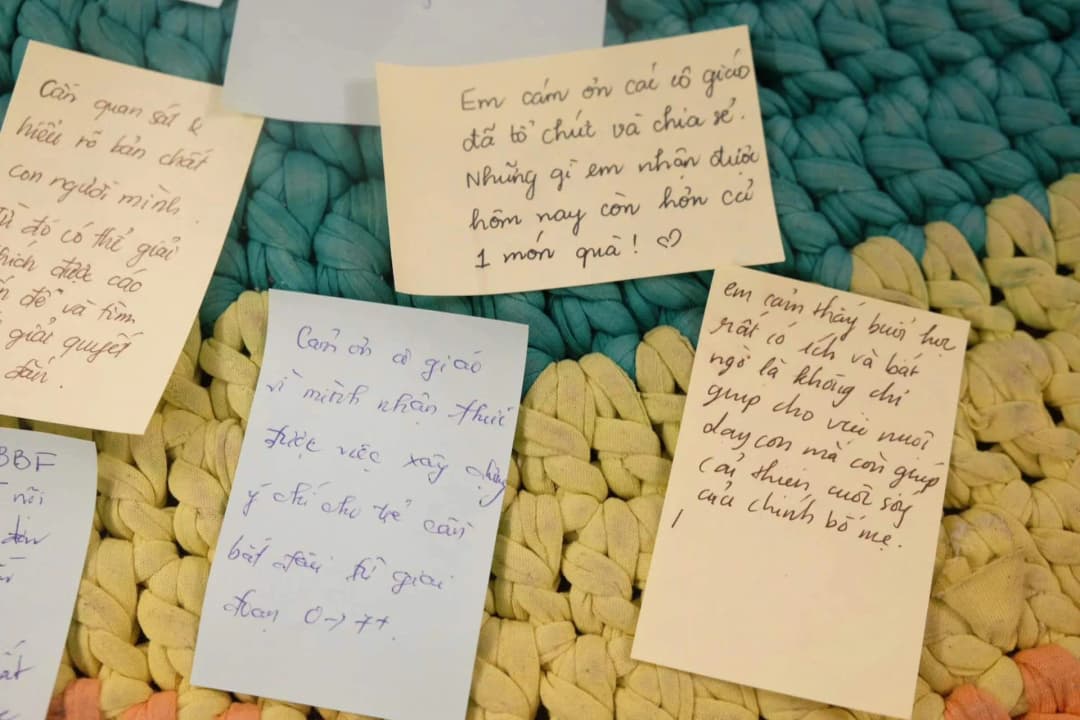 Cần quan sát &
hiểu rõ bản chất
con người mình.
Từ đó có thể giải
thích được các
vấn đề và tìm
giải quyết
đắn.
Em cám ơn các cô giáo
đã tổ chút và chia sẻ.
Những gì em nhận được
hôm nay còn hơn cả
1 món quà! ♡
Cảm ơn cô giáo
vì mình nhận thức
được việc xây dựng
ý chí cho trẻ cần
bắt đầu từ giai
đoạn 0→7t.
em cảm thấy buổi học
rất có ích và bất
ngờ là không chỉ
giúp cho việc nuôi
dạy con mà còn giúp
cải thiện cuộc sống
của chính bố mẹ.
BBF
nói